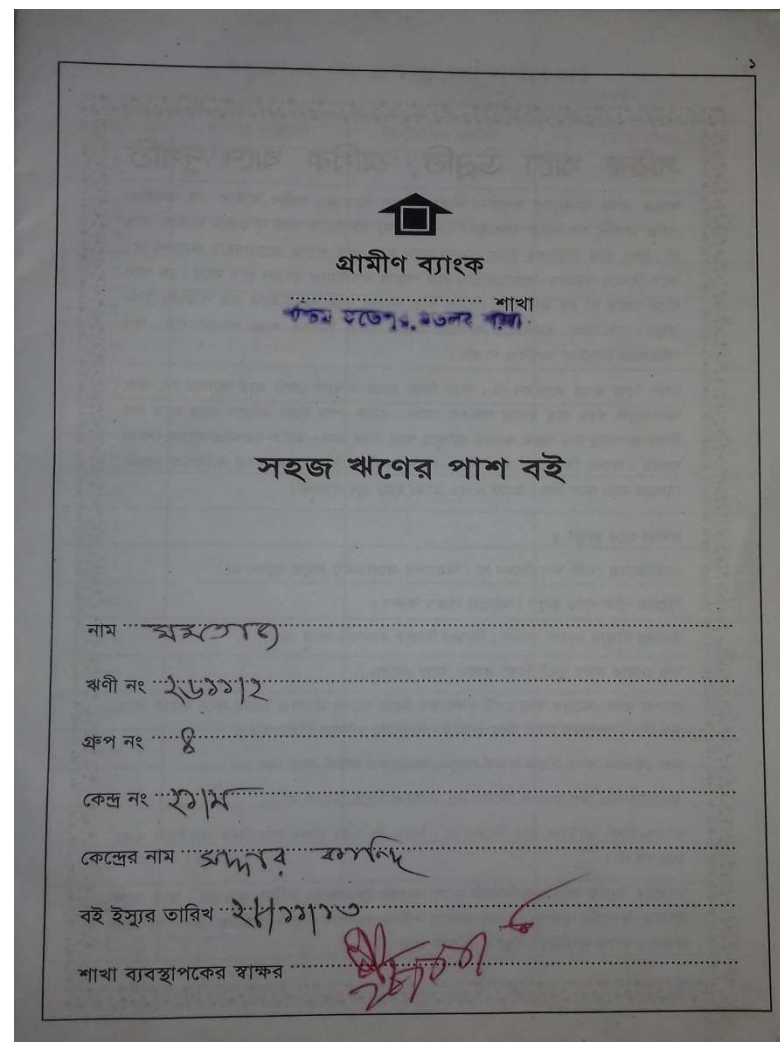 ১
গ্রামীণ ব্যাংক
শাখা
সহজ ঋণের পাশ বই
নাম মমতাজ
ঋণী নং ২৬১১/২
গ্রুপ নং ৪
কেন্দ্র নং ২১/ম
কেন্দ্রের নাম সদ্দার কান্দি
বই ইস্যুর তারিখ
শাখা ব্যবস্থাপকের স্বাক্ষর